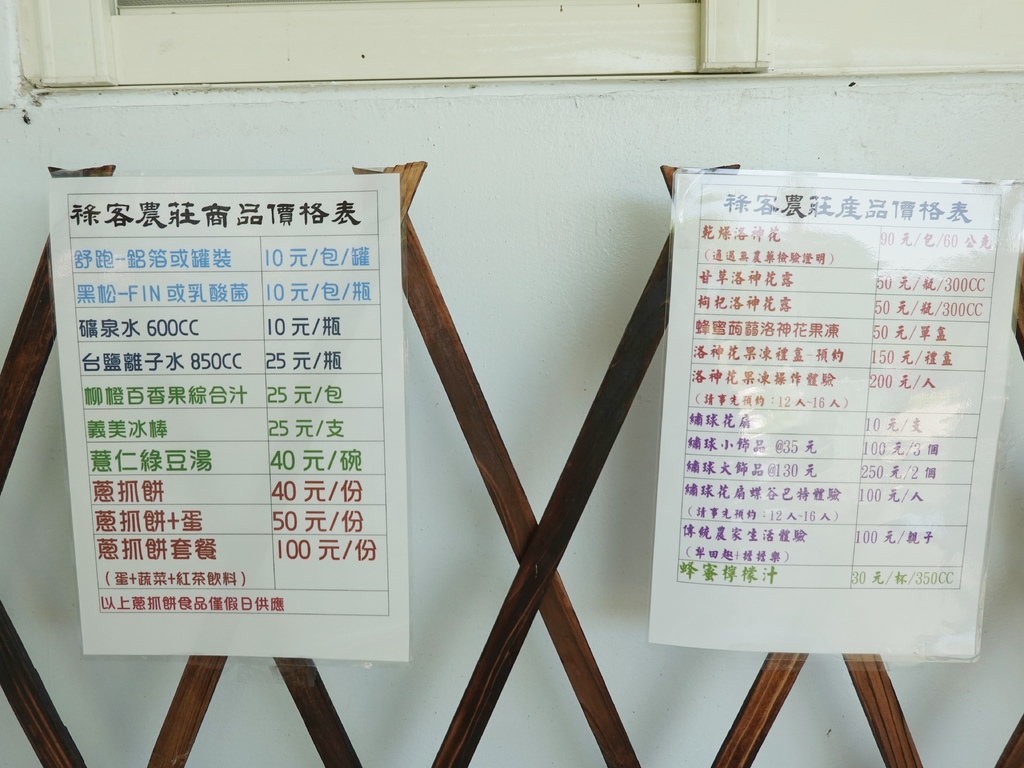 祿客農莊商品價格表
舒跑-鋁箔或罐裝 10 元/包/罐
黑松-FIN 或乳酸菌 10 元/包/瓶
礦泉水 600CC 10 元/瓶
台鹽離子水 850CC 25 元/瓶
柳橙百香果綜合汁 25 元/包
義美冰棒 25 元/支
薏仁綠豆湯 40 元/碗
蔥抓餅 40 元/份
蔥抓餅+蛋 50 元/份
蔥抓餅套餐 100 元/份
(蛋+蔬菜+紅茶飲料)
以上蔥抓餅食品僅假日供應
祿客農莊産品價格表
乾燥洛神花 90 元/包/60 公克
(通過無農藥檢驗證明)
甘草洛神花露 50 元/瓶/300CC
枸杞洛神花露 50 元/瓶/300CC
蜂蜜蒟蒻洛神花果凍 50 元/單盒
洛神花果凍禮盒-預約 150 元/禮盒
洛神花果凍操作體驗 200 元/人
(請事先預約:12 人-16 人)
繡球花扇 10 元/支
繡球小飾品 @35 元 100 元/3 個
繡球大飾品@130 元 250 元/2 個
繡球花扇蝶谷巴特體驗 100 元/人
(請事先預約:12 人-16 人)
傳統農家生活體驗 100 元/親子
蜂蜜檸檬汁 30 元/杯/350CC